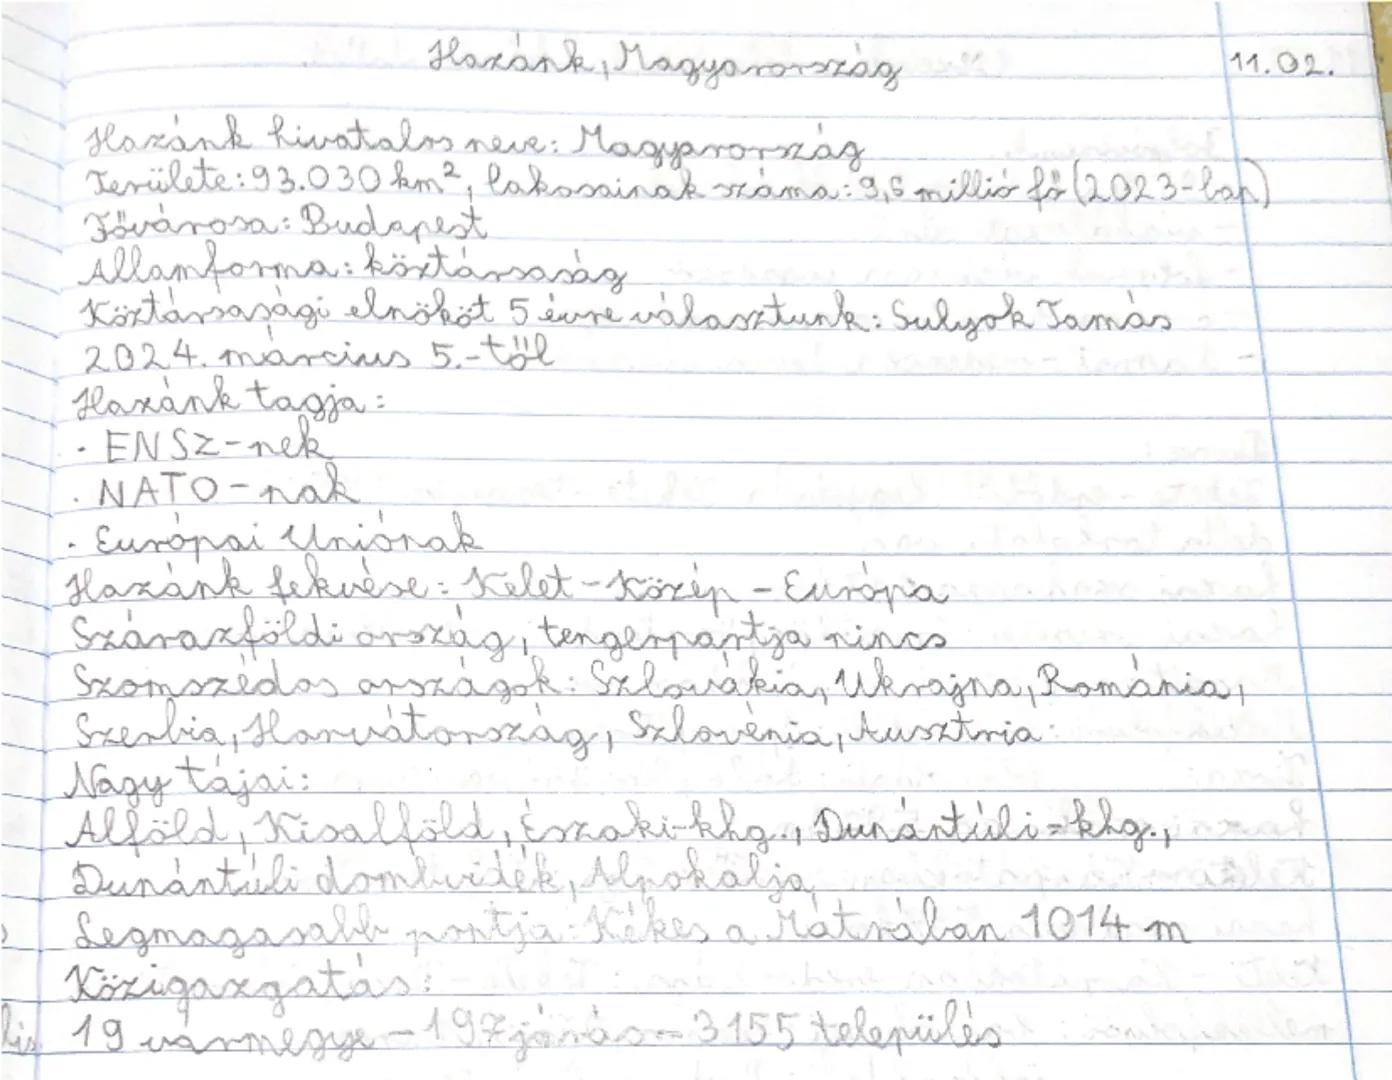 Hazánk, Magyarország 11.02.
Hazánk hivatalos neve: Magyarország
Területe: 93.030 km², lakosainak száma: 9,6 millió fő (2023-ban)
Fővárosa: Budapest
Államforma: köztársaság
Köztársasági elnököt 5 évre választunk: Sulyok Tamás
2024. március 5.-től
Hazánk tagja:
· ENSZ-nek
· NATO-nak
· Európai Uniónak
Hazánk fekvése: Kelet-Közép-Európa
Szárazföldi ország, tengerpartja nincs
Szomszédos országok: Szlovákia, Ukrajna, Románia,
Szerbia, Horvátország, Szlovénia, Ausztria
Nagy tájai:
Alföld, Kisalföld, Északi-khg., Dunántúli-khg.,
Dunántúli dombvidék, Alpokalja
Legmagasabb pontja: Kékes a Mátrában 1014 m
Közigazgatás:
19 vármegye - 197 járás - 3155 település